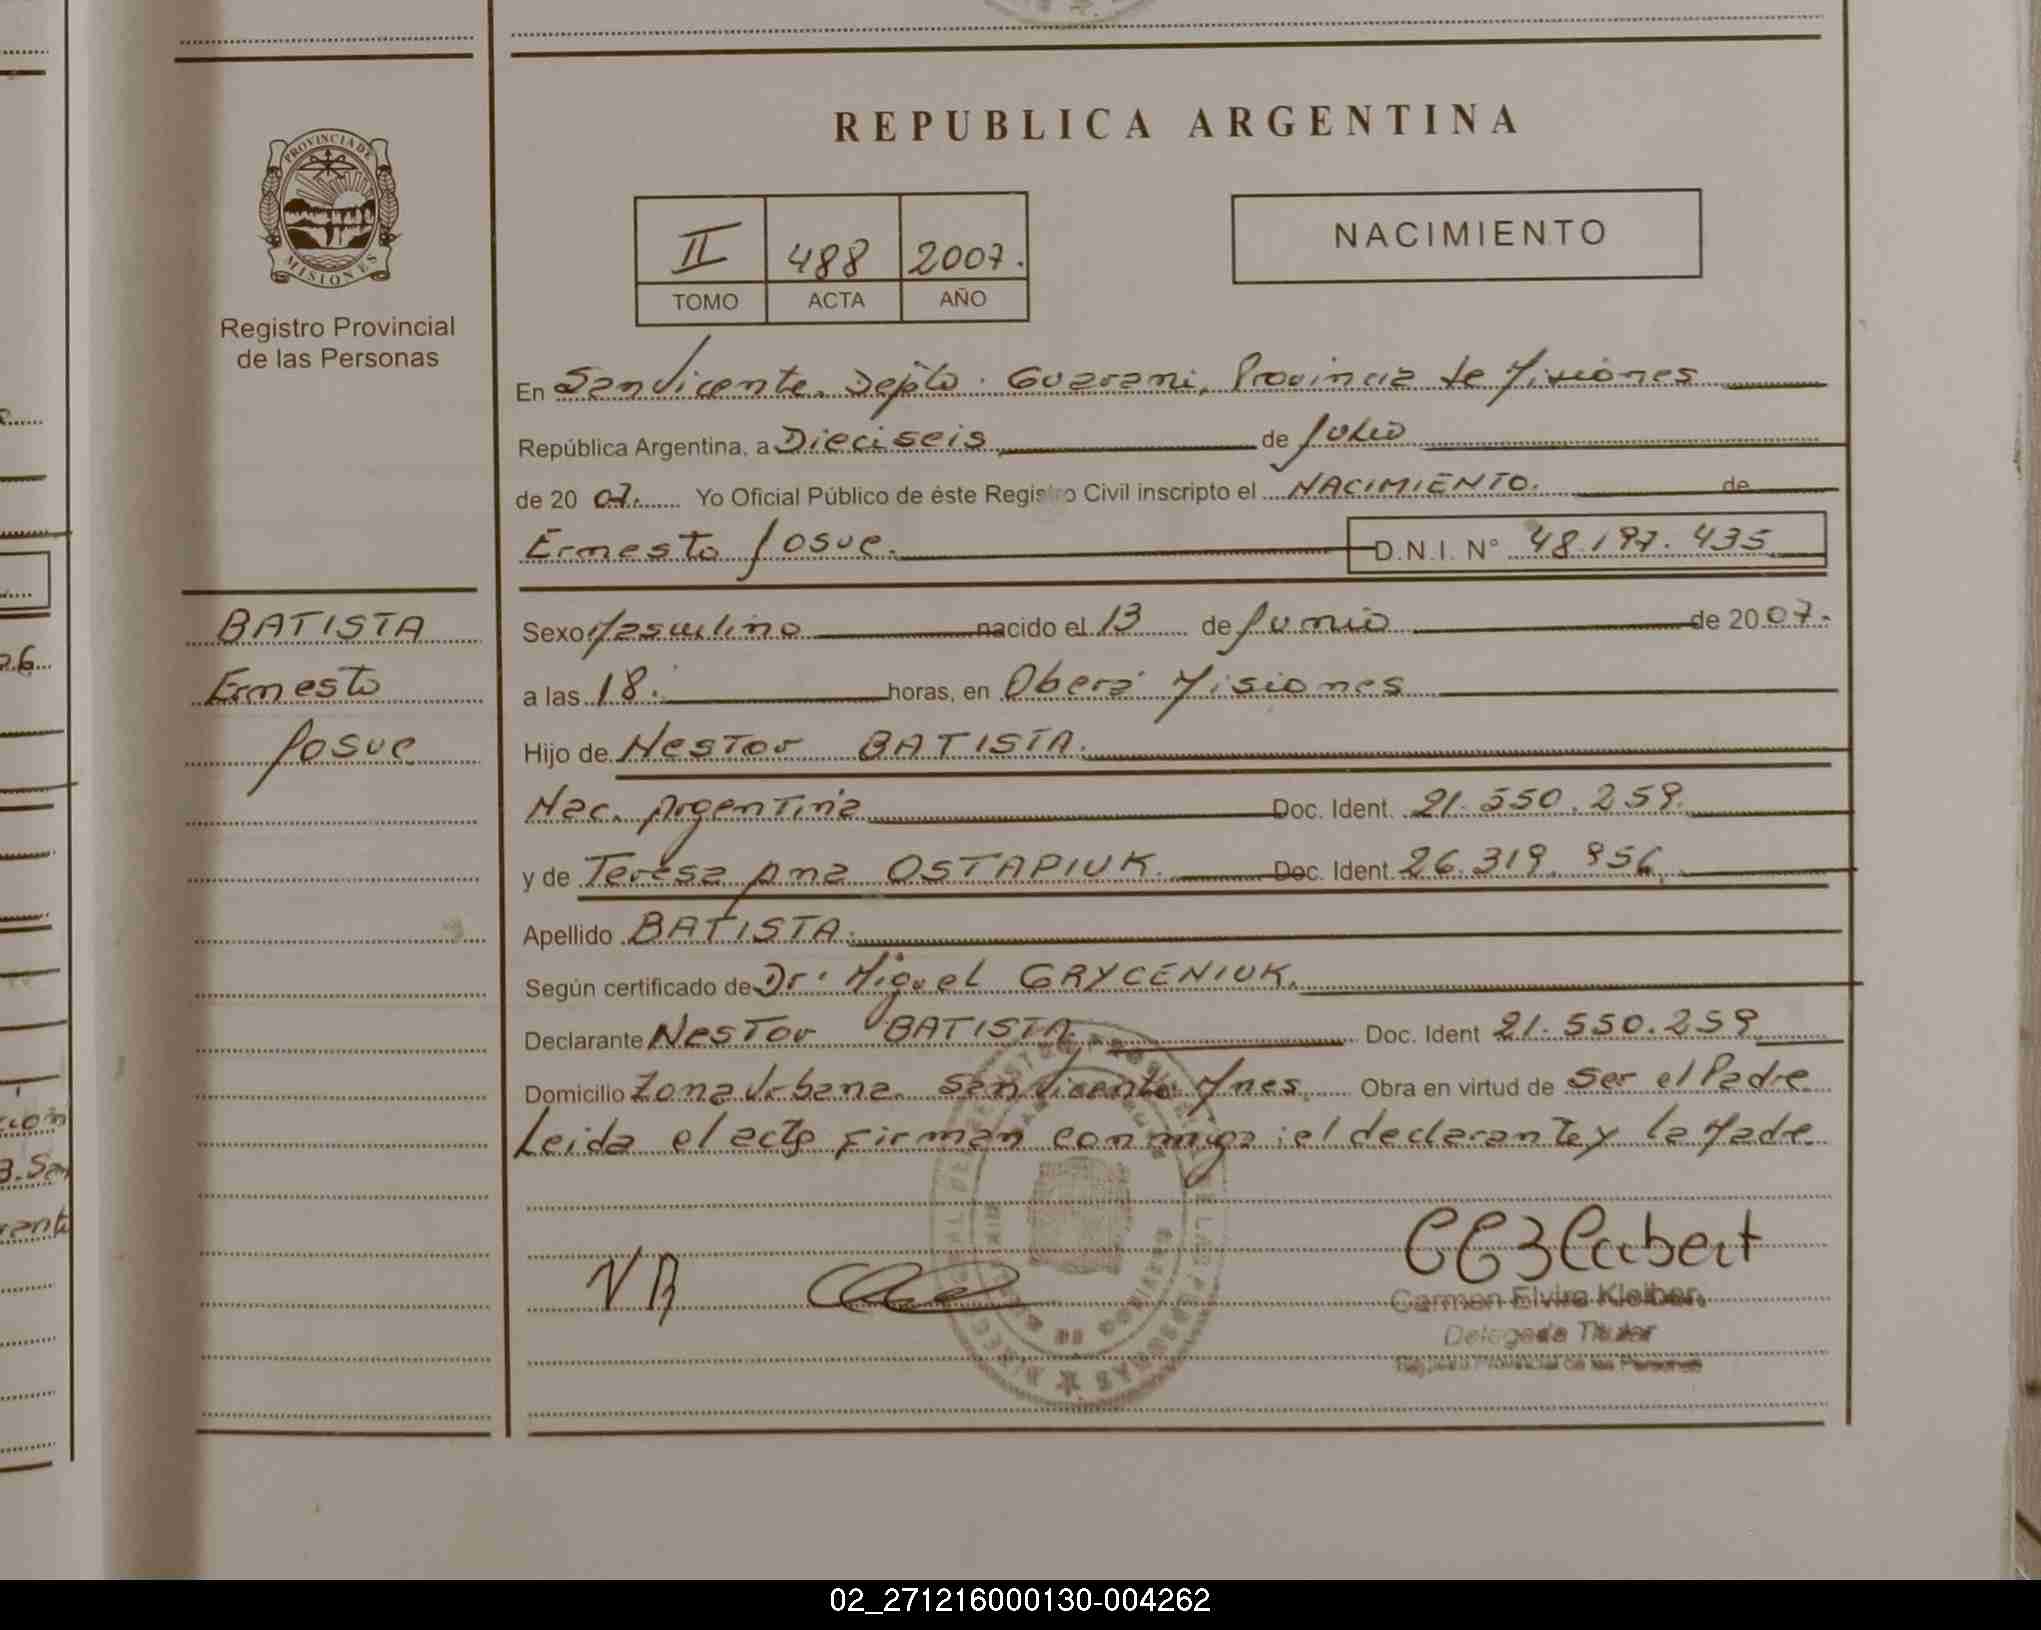 REPUBLICA ARGENTINA
PROVINCIA DE MISIONES
Registro Provincial
de las Personas
II 488 2007.
TOMO ACTA AÑO
NACIMIENTO
En San Vicente. Depto. Guarani, Provincia de Misiones
República Argentina, a Dieciseis de Julio
de 20 07. Yo Oficial Público de éste Registro Civil inscripto el NACIMIENTO. de
Ernesto Josue. D.N.I. N° 48.197.435
BATISTA
Ernesto
Josue
Sexo Masculino nacido el 13 de Junio de 20 07.
a las 18. horas, en Oberá Misiones
Hijo de Nestor BATISTA.
Nac. Argentina Doc. Ident. 21.550.259.
y de Teresa Ana OSTAPIUK. Doc. Ident. 26.319.956.
Apellido BATISTA.
Según certificado de Dr. Miguel GRYCENIUK.
Declarante Nestor BATISTA Doc. Ident 21.550.259
Domicilio Zona Urbana. San Vicente Mnes. Obra en virtud de Ser el Padre
Leida el acta firman conmigo: el declarante y la Madre
Carmen Elvira Kleiber
Delegada Titular
Registro Provincial de las Personas
02_271216000130-004262